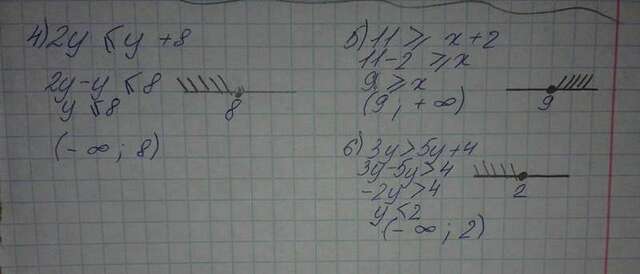 4) 2y ≤ y + 8
2y - y ≤ 8
y ≤ 8
8
(-∞; 8)
5) 11 ≥ x + 2
11 - 2 ≥ x
9 ≥ x
(9, +∞)
9
6) 3y > 5y + 4
3y - 5y > 4
-2y > 4
y < 2
2
(-∞; 2)